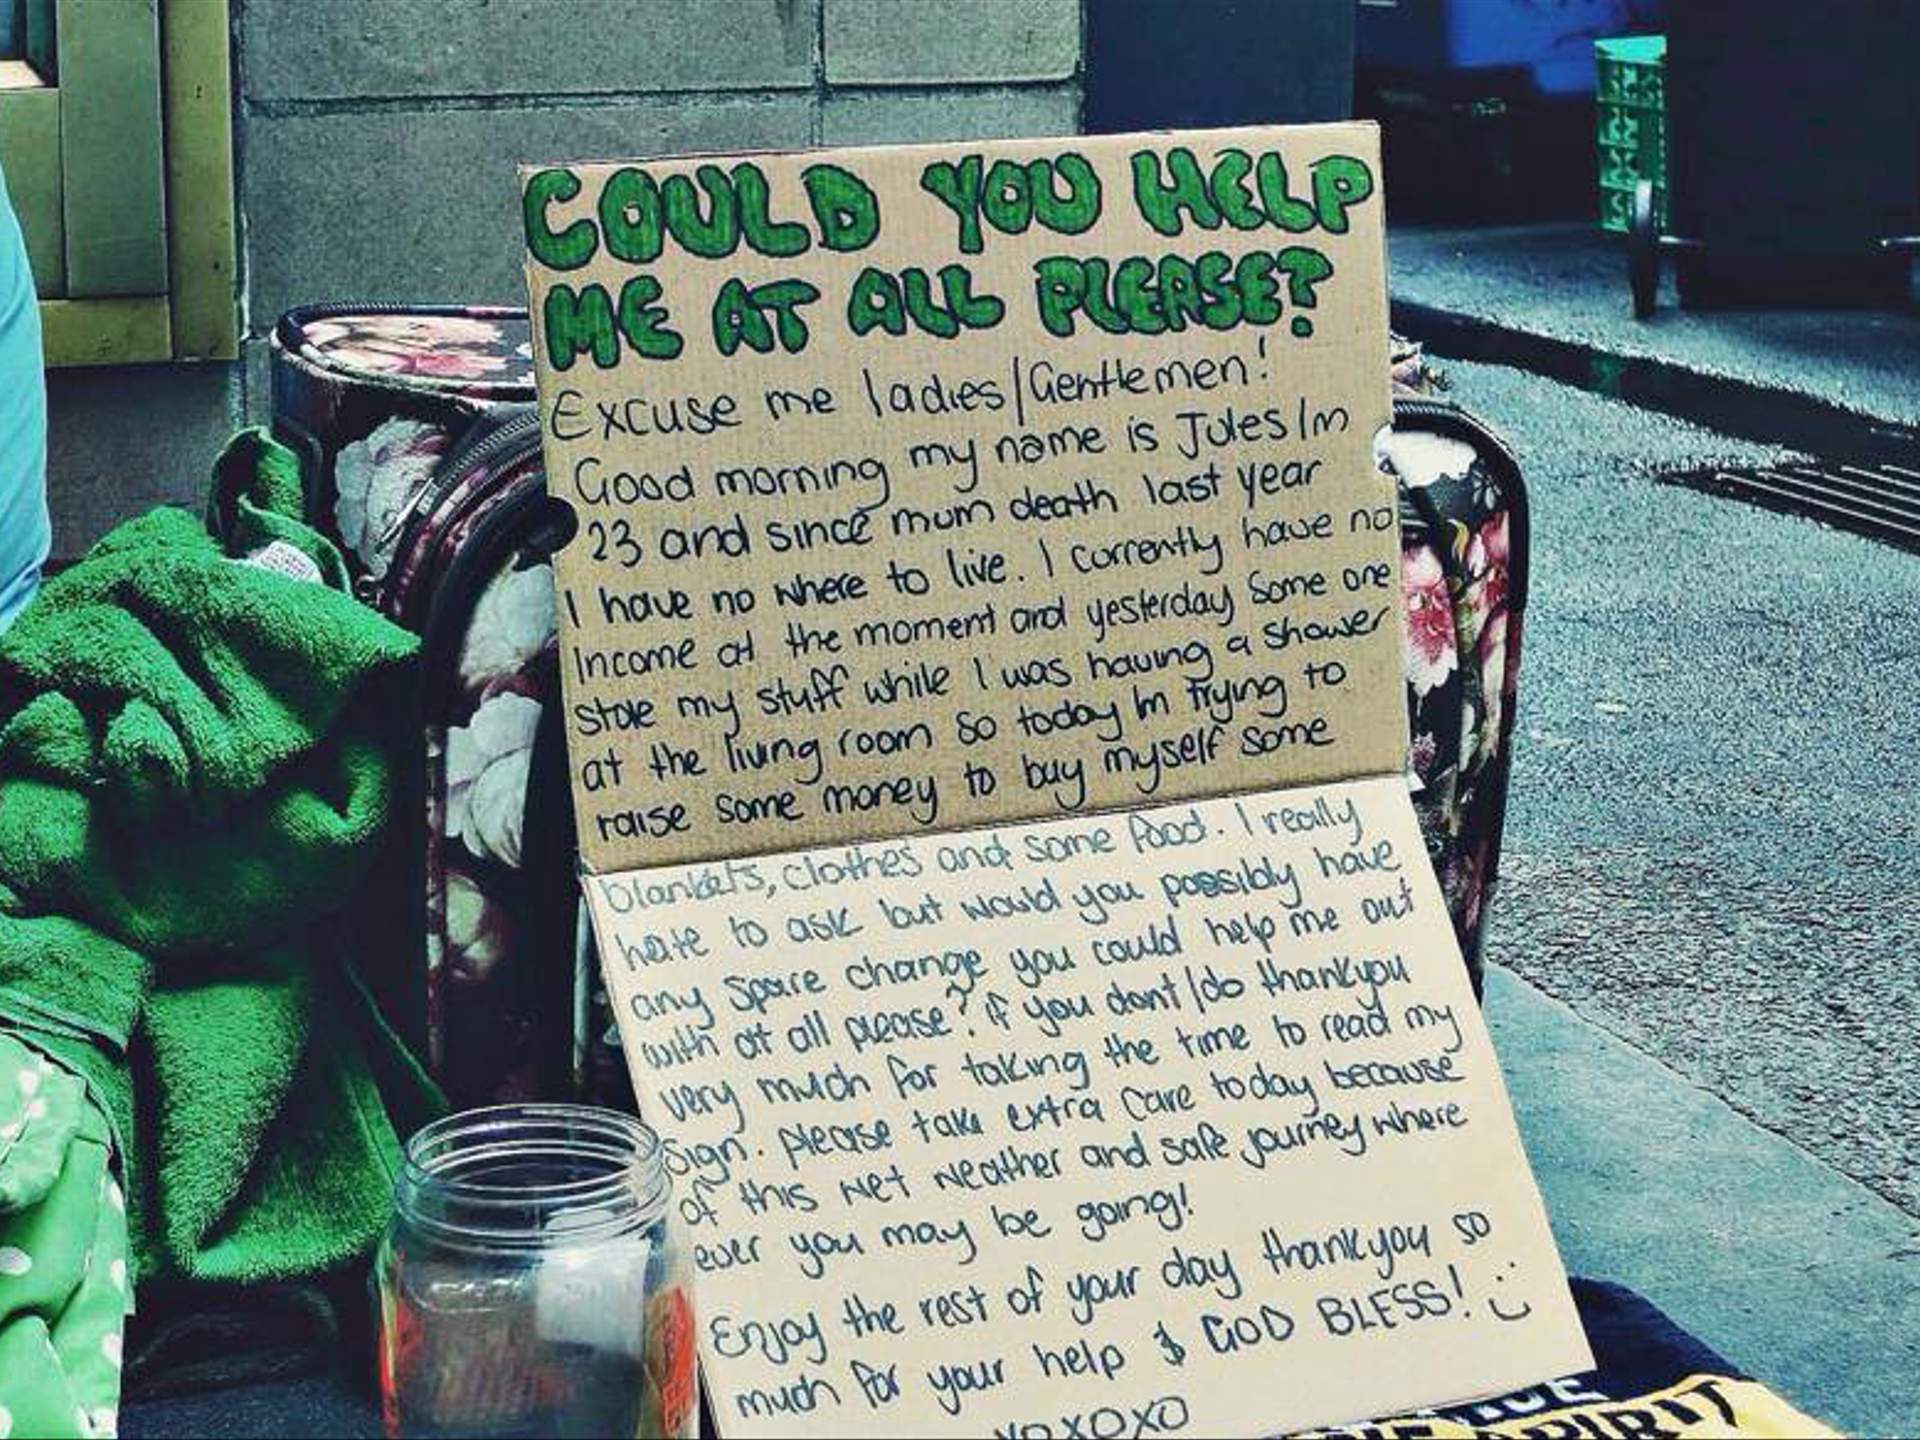 COULD YOU HELP
ME AT ALL PLEASE?
Excuse me ladies/Gentlemen!
Good morning my name is Jules Im
23 and since mum death last year
I have no where to live. I currently have no
Income at the moment and yesterday Some one
stole my stuff while I was having a shower
at the living room So today Im trying to
raise some money to buy myself some
blankets, clothes and some food. I really
hate to ask but would you possibly have
any Spare change you could help me out
with at all please? if you dont/do thankyou
very much for taking the time to read my
Sign. please take extra Care today because
of this wet weather and safe journey where
ever you may be going!
Enjoy the rest of your day thankyou so
much for your help & GOD BLESS!
XOXOXO
SPIRIT